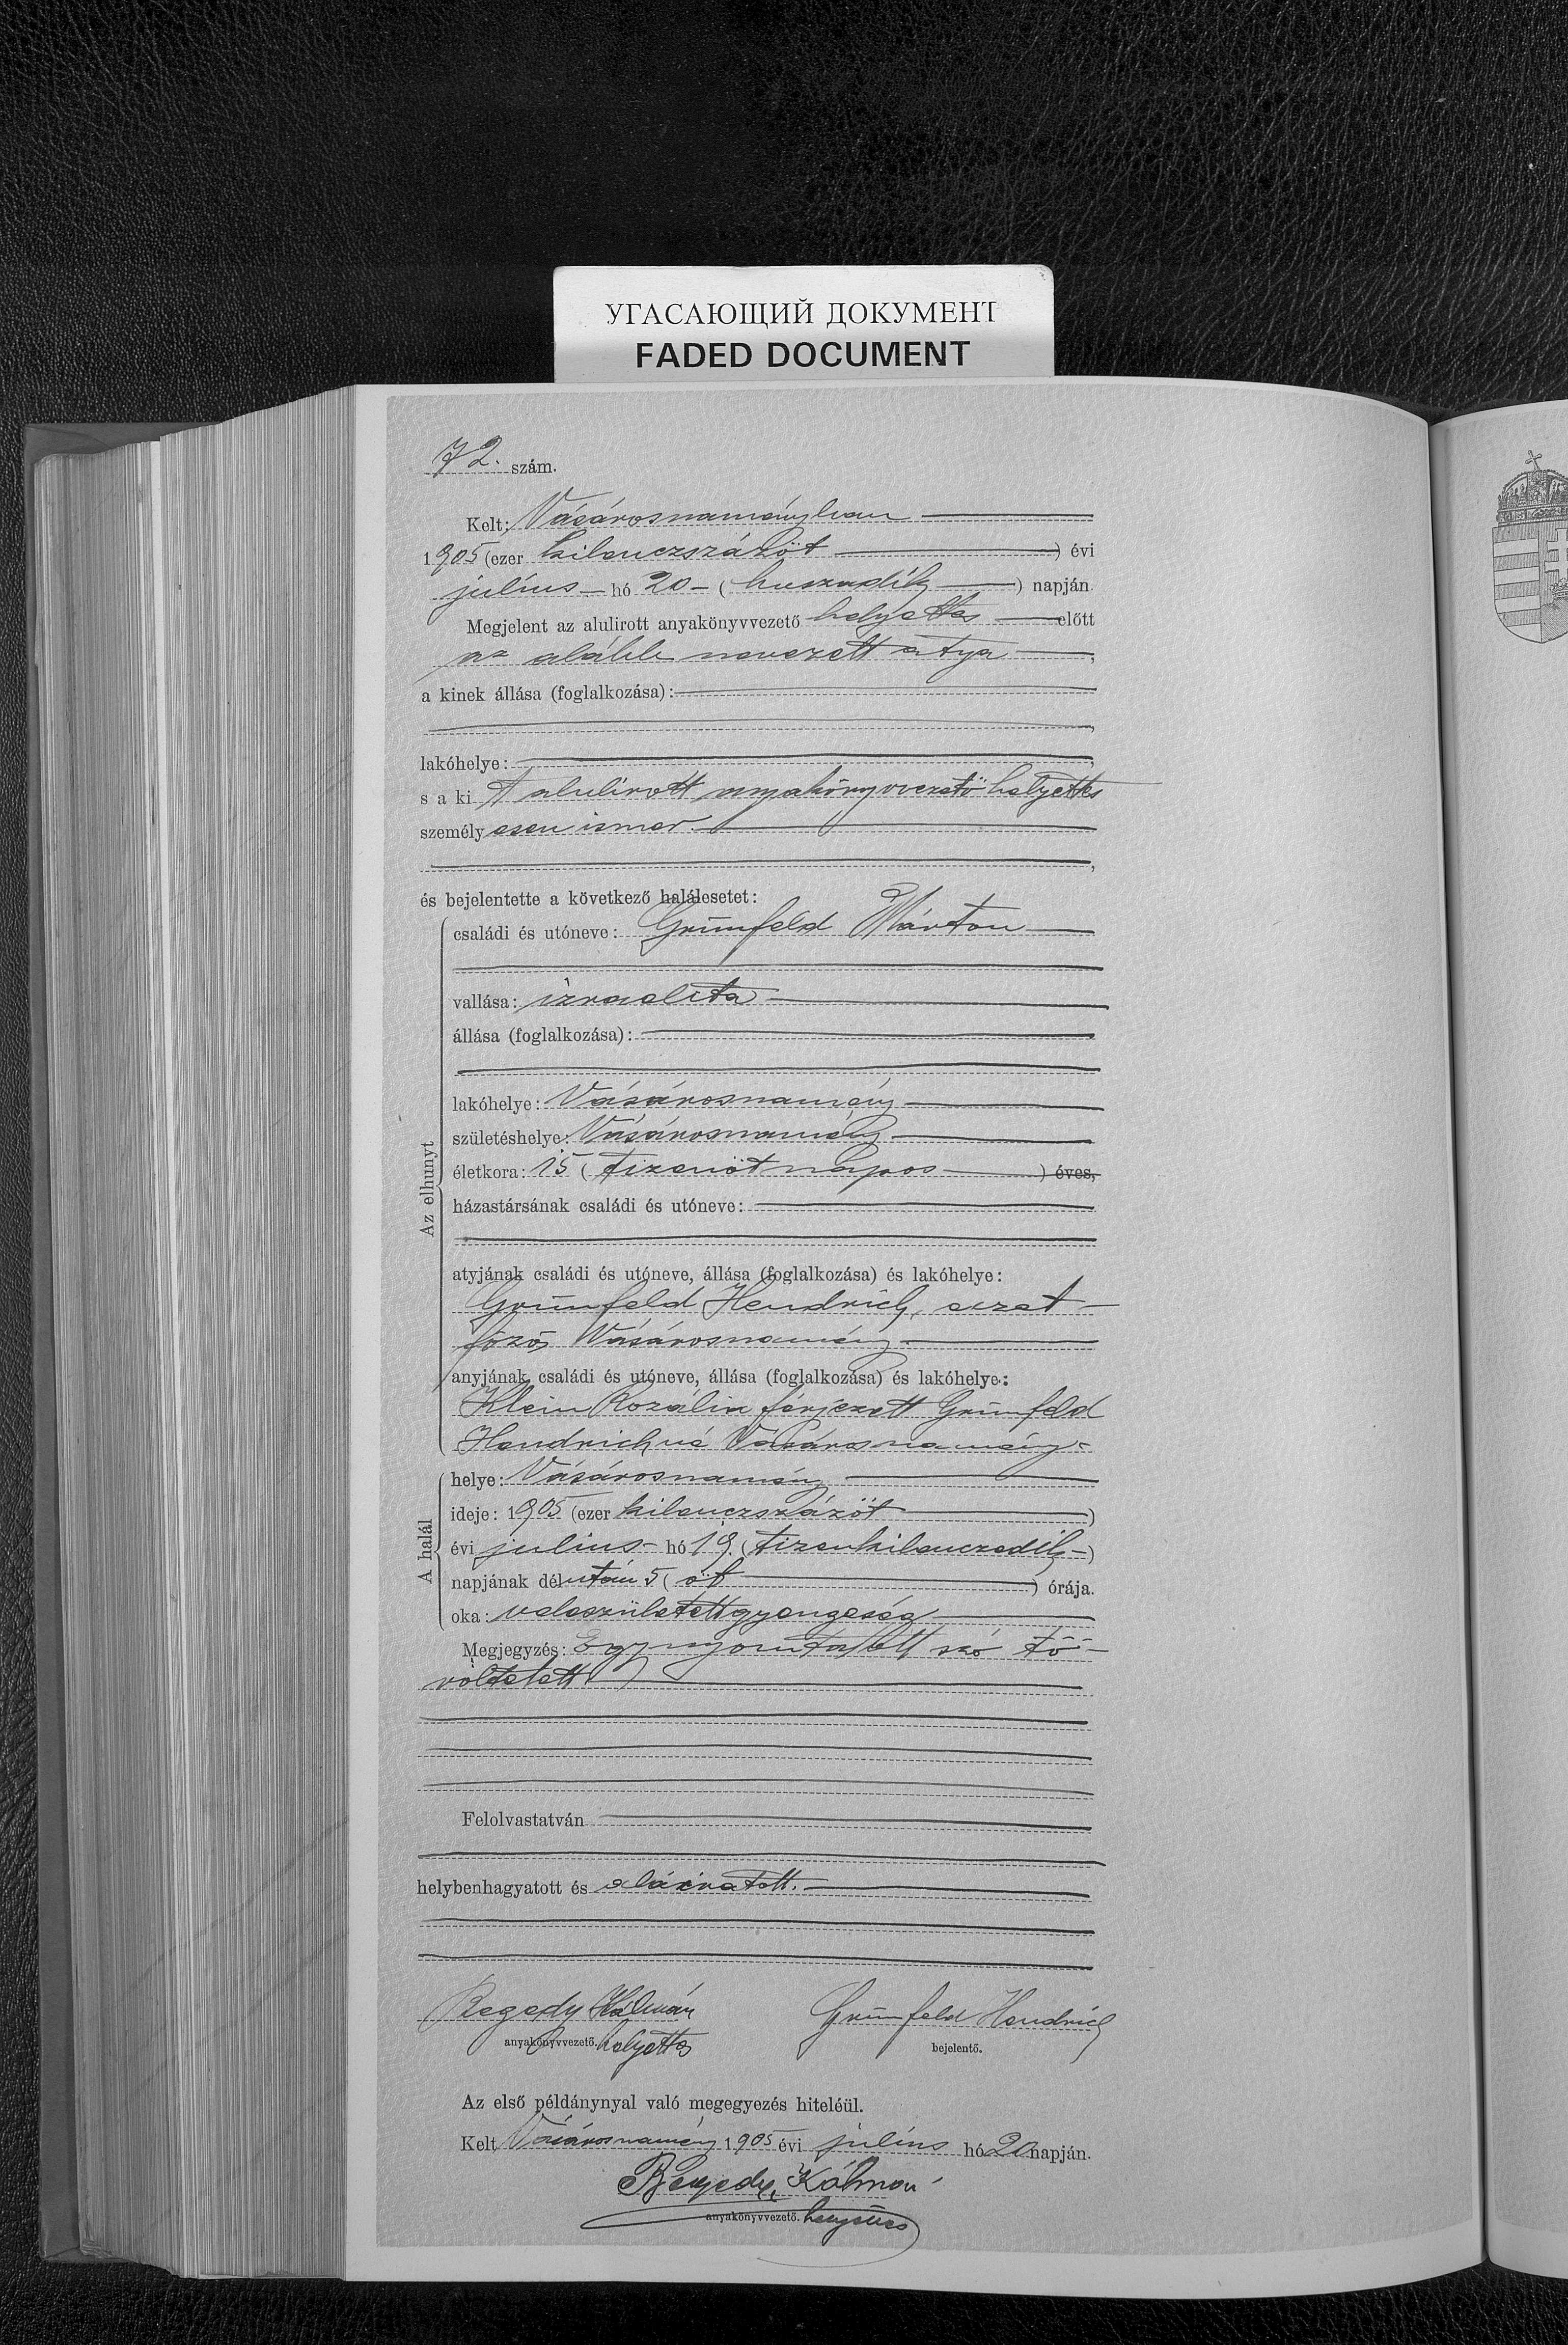 УГАСАЮЩИЙ ДОКУМЕНТ
FADED DOCUMENT
72. szám.
Kelt: Vásárosnaményban
1905 (ezer kilenczszázöt) évi
július hó 20 (huszadik) napján.
Megjelent az alulirott anyakönyvvezető helyettes előtt
az alább nevezett atya,
a kinek állása (foglalkozása):
lakóhelye:
s a kit alulirott anyakönyvvezető helyettes
személyesen ismer.
és bejelentette a következő halálesetet:
Az elhunyt
családi és utóneve: Grünfeld Márton
vallása: izraelita
állása (foglalkozása):
lakóhelye: Vásárosnamény
születéshelye: Vásárosnamény
életkora: 15 (tizenöt napos) éves,
házastársának családi és utóneve:
atyjának családi és utóneve, állása (foglalkozása) és lakóhelye:
Grünfeld Hendrich, eczet-
főző, Vásárosnamény
anyjának családi és utóneve, állása (foglalkozása) és lakóhelye:
Klein Rozália férjezett Grünfeld
Hendrichné Vásárosnamény
A halál
helye: Vásárosnamény
ideje: 1905 (ezer kilenczszázöt)
évi julius hó 19. (tizenkilenczedik)
napjának délután 5 (öt) órája.
oka: veleszületett gyengeség
Megjegyzés: Egy nyomtatott szó tö-
röltetett
Felolvastatván
helybenhagyatott és aláiratott.
Begedy Kálmán Grünfeld Hendrich
anyakönyvvezető. helyettes bejelentő.
Az első példánynyal való megegyezés hiteléül.
Kelt Vásárosnamény 1905 évi július hó 20 napján.
Begedy Kálmán
anyakönyvvezető. helyettes